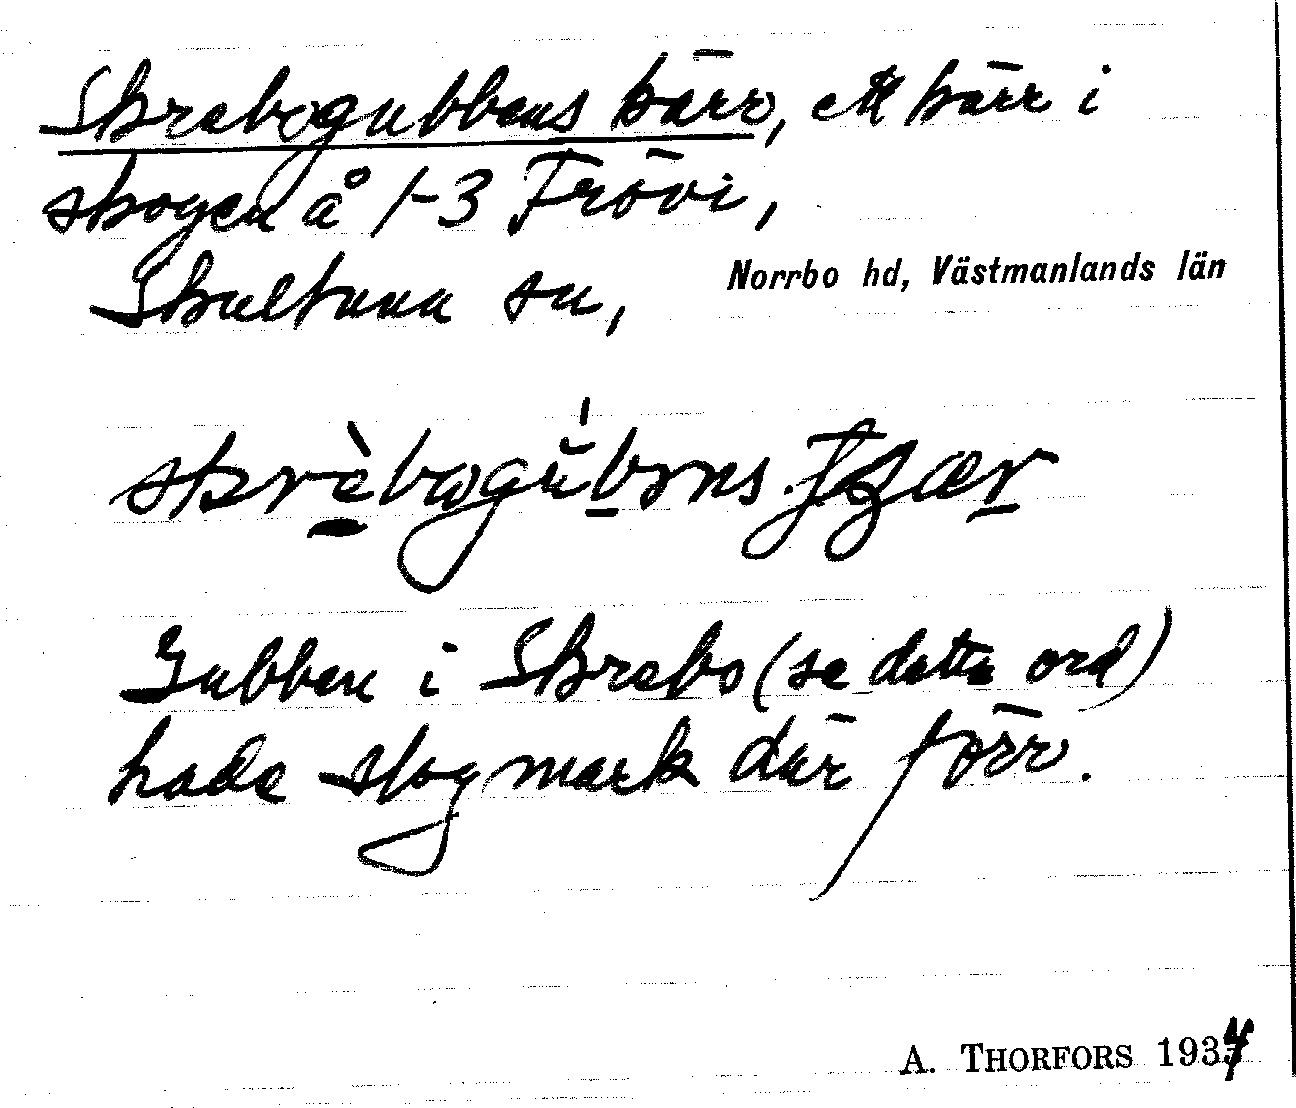 Skrebogubbens kärr, ett kärr i
skogen å 1-3 Frövi,
Skultuna sn, Norrbo hd, Västmanlands län
Gubben i Skrebo (se detta ord)
hade slogmark där förr.
A. THORFORS 1934